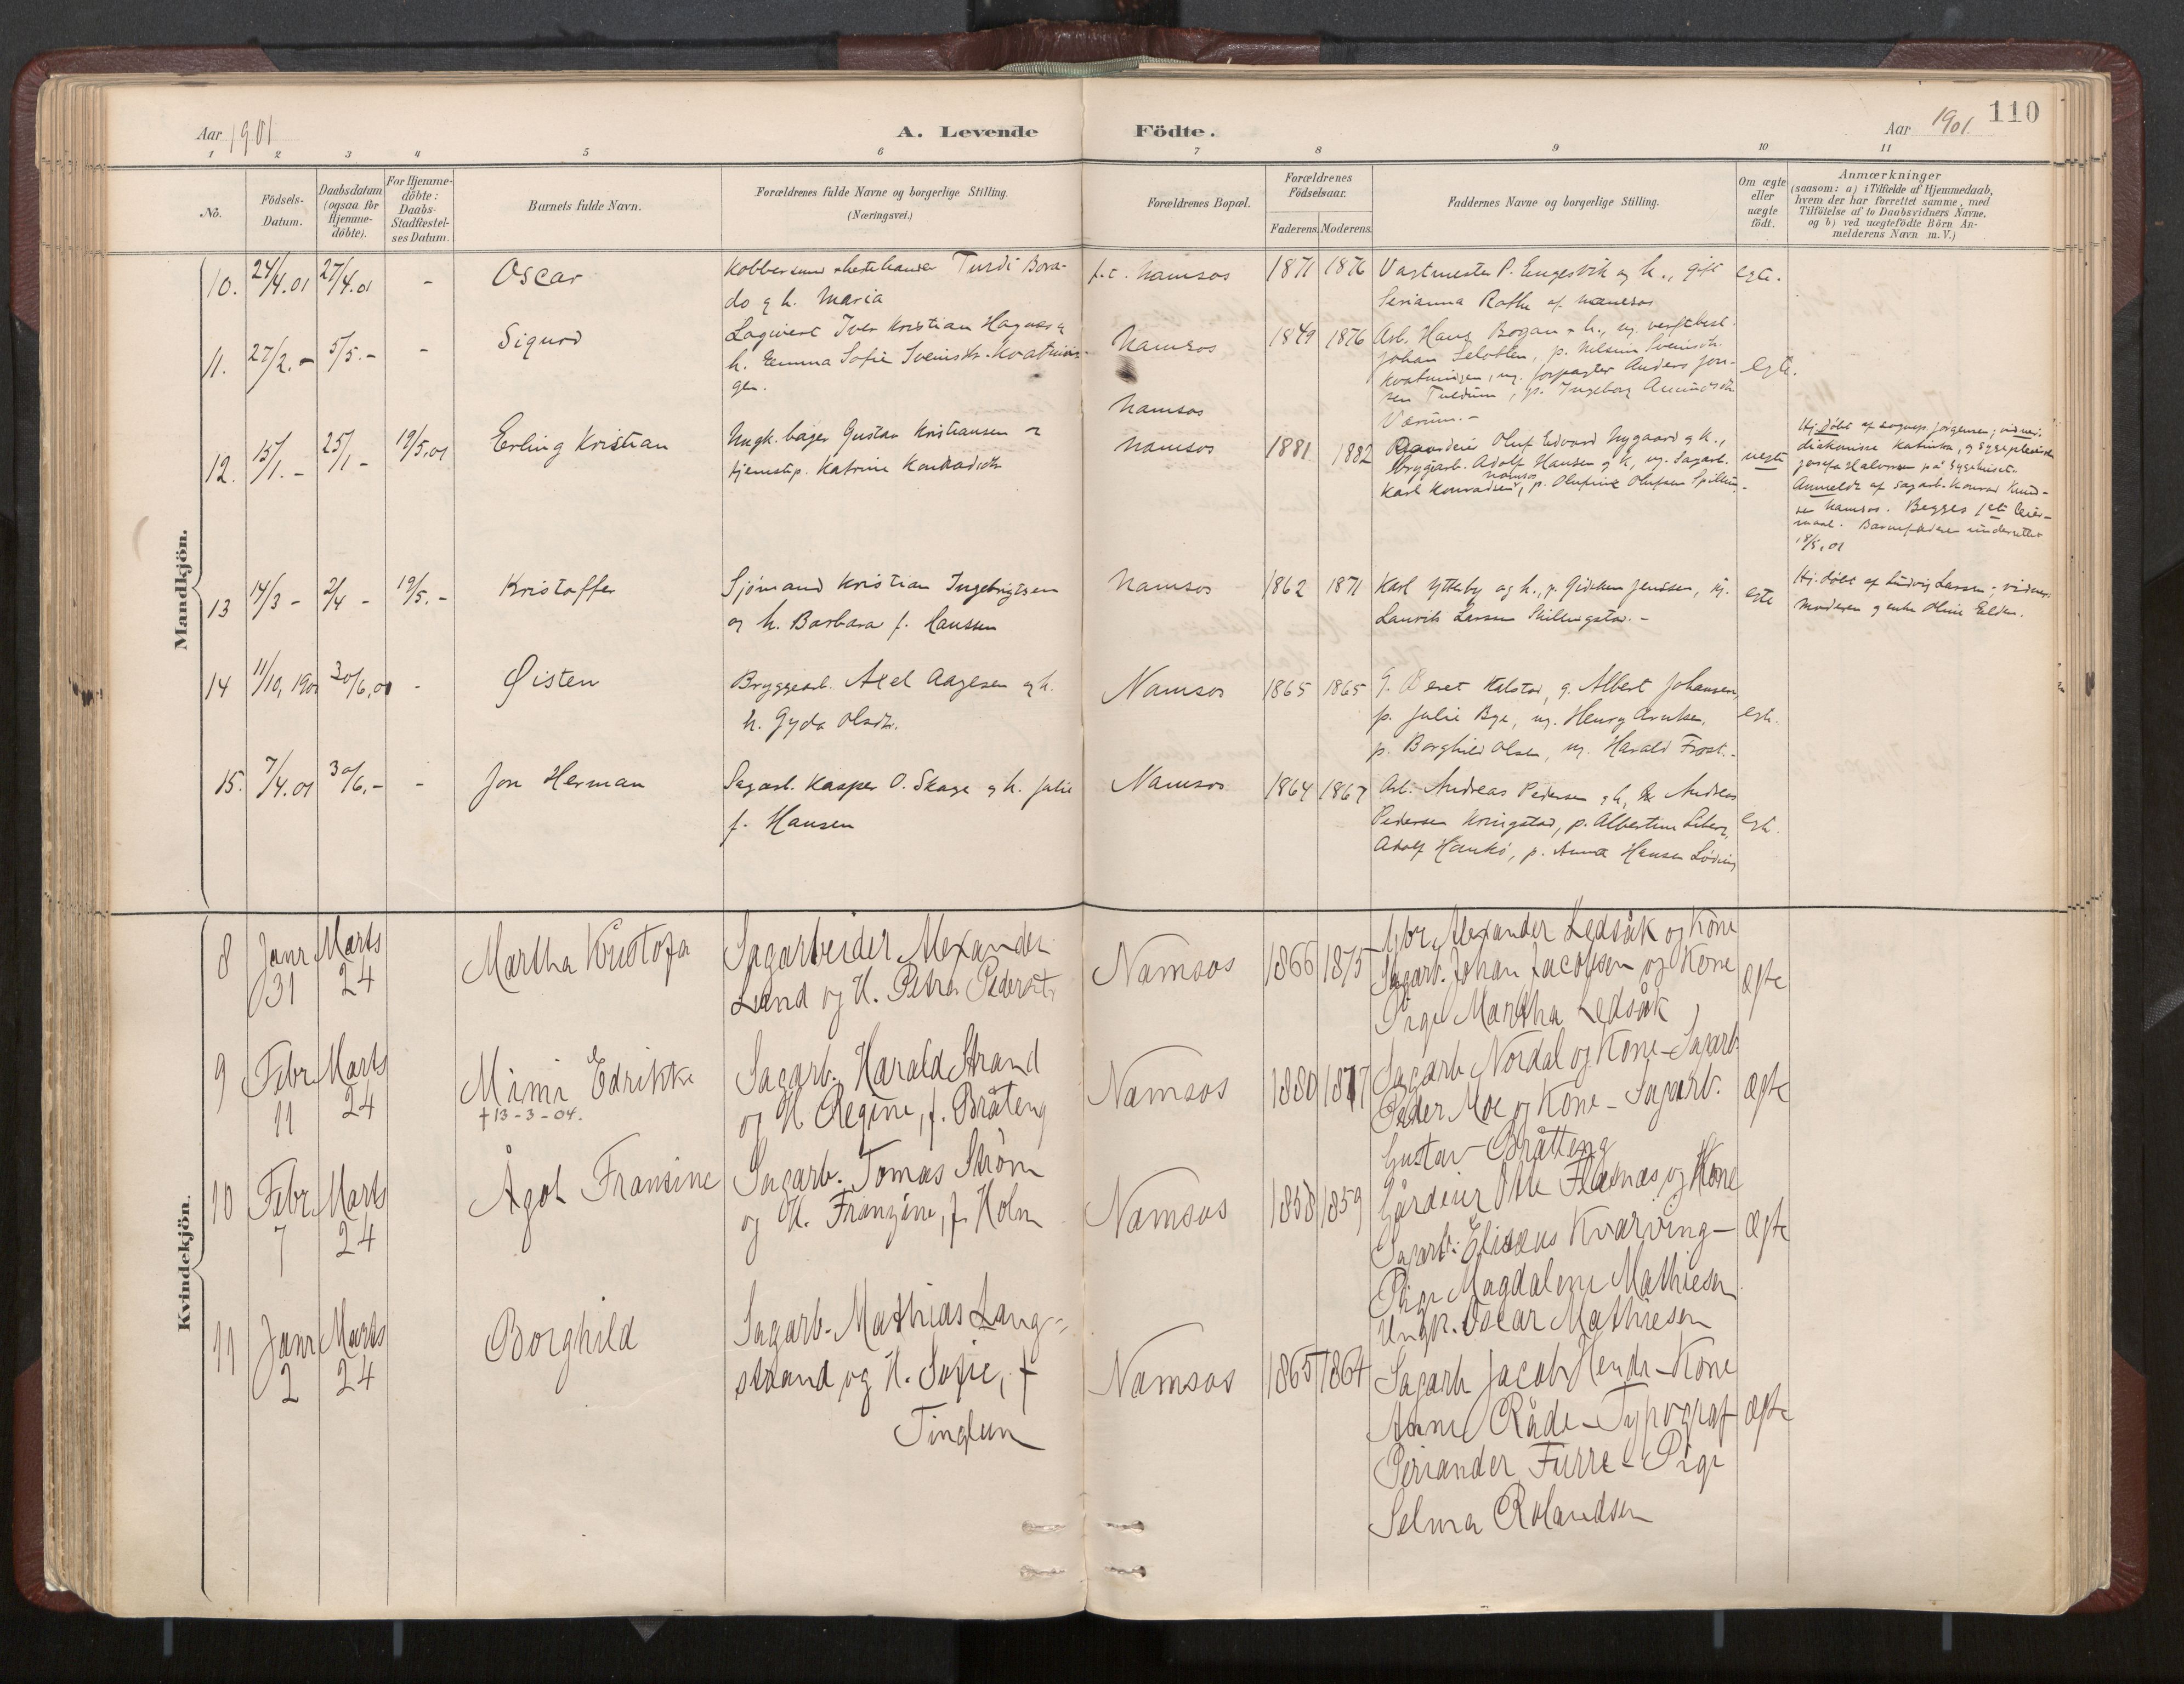 110
Aar 1901
A. Levende
Födte.
Aar 1901
1 2 3 4 5 6 7 8 9 10 11
Nö.
Födsels-Datum.
Daabsdatum (ogsaa for Hjemme-döbte).
For Hjemme-döbte: Daabs-Stadfæstel-ses Datum.
Barnets fulde Navn.
Forældrenes fulde Navne og borgerlige Stilling.
(Næringsvei.)
Forældrenes Bopæl.
Forældrenes Födselsaar.
Faderens. Moderens.
Faddernes Navne og borgerlige Stilling.
Om ægte eller uægte födt.
Anmærkninger
(saasom: a) i Tilfælde af Hjemmedaab,
hvem der har forrettet samme, med
Tilföielse af to Daabsvidners Navne,
og b) ved uægtefödte Börn An-
melderens Navn m. V.)
Mandkjön.
10. 24/4.01 27/4.01 - Oscar
Turdi Bora-
do og h. Maria
f.t. Namsos 1871 1876
Vagtmester P. Engesvik og h., gift
Serianna Rothe af Namsos
egte.
11. 27/2.- 5/5.- - Sigurd
Iver Kristian Hagnes og
h. Emma Sofie Sveinsdtr. Kvatnin-
gen.
Namsos 1849 1876
Arb. Hans Bogan og h., ug.
Johan p. Nilsine Sveinsdtr.
Kvatningen, ug. forpagter Anders Jon-
sen p. Ingeborg Amundsdtr
Værum.-
egte.
Namsos
12. 15/1.- 25/1 - 19/5.01 Erling Kristian
Ungk. bager Gustav Kristiansen og
tjenestp. Katrine Konradsdtr
Namsos 1881 1882
Gaardeier Oluf Edvard Nygaard og k.,
Bryggearb. Adolf Hansen og k, ug. Sagarb.
Karl Konradsen, Namsos, p. Olufine Olufsen Spillum.-
uegte
Hj. døbt af sognep. Jørgensen; vidner:
diakonisse Katinka, og sygepleierske
Josefa Halvorsen på sygehuset.
Anmeldt af sagarb. Konrad Knud-
sen Namsos. Begges 1ste leier-
maal. Barnefaderen underrettet
18/5.01
13 14/3 - 2/4 - 19/5.- Kristoffer
Sjømand Kristian Ingebrigtsen
og h. Barbara f. Hanssen
Namsos 1862 1871
Karl Ytterby og h., p. Jenssen, ug.
Laurits Larsen Skillingstad.-
egte
Hj. døbt af Ludvig Larsen; vidner:
Moderen og enke Oline Elden.
14 11/10, 1900 30/6,01 - Øisten
Bryggearb. Axel Aagesen og h.
h. Gyda Olsdtr.
Namsos 1865 1865
G. Beret Kalstad, g. Albert Johansen,
p. Julie Bye, ug. Henry Arntsen,
p. Borghild Olsen, ug. Harald Frost.-
egte.
15. 7/4.01 30/6.- - Jon Herman
Sagarb. Kasper O. Skage og h. Julie
f. Hansen
Namsos 1864 1867
Arb. Andreas Pedersen og h, Andreas
Pedersen Kringstad, p. Albertine
Adolf Hankø, p. Anna Hansen Løding
egte.
Kvindekjön.
8 Janr 31 Marts 24 Martha Kristofa
Sagarbeider Alexander
Lund og H. Petra Pedersdtr
Namsos 1866 1875
Alexander Ledsåk og Kone
Sagarb. Johan Jacobsen og Kone
Pige Martha Ledsåk
ægte
9 Febr 11 Marts 24 Mimi Edrikke
+ 13-3-04.
Sagarb. Harald Strand
og H. Regine, f. Bråteng
Namsos 1880 1877
Sagarb Nordal og Kone - Sagarb.
Peder Moe og Kone - Sagarb.
Gustav Bråtteng
ægte
10 Febr 7 Marts 24 Ågot Fransine
Sagarb. Tomas Strøm
og H. Franzine, f. Holm
Namsos 1858 1859
Gårdeier Otte Flasnæs og Kone
Sagarb. Elisæus Kvarving -
Pige Magdalene Mathiesen
Ungk. Oscar Mathiesen
ægte
11 Janr 2 Marts 24 Borghild
Sagarb. Mathias Lang-
strand og H. Sofie, f
Tinglum
Namsos 1865 1864
Sagarb Jacob Hendr - Kone
Anne Råde - Typograf
Periander Furre - Pige
Selma Rolandsen
ægte